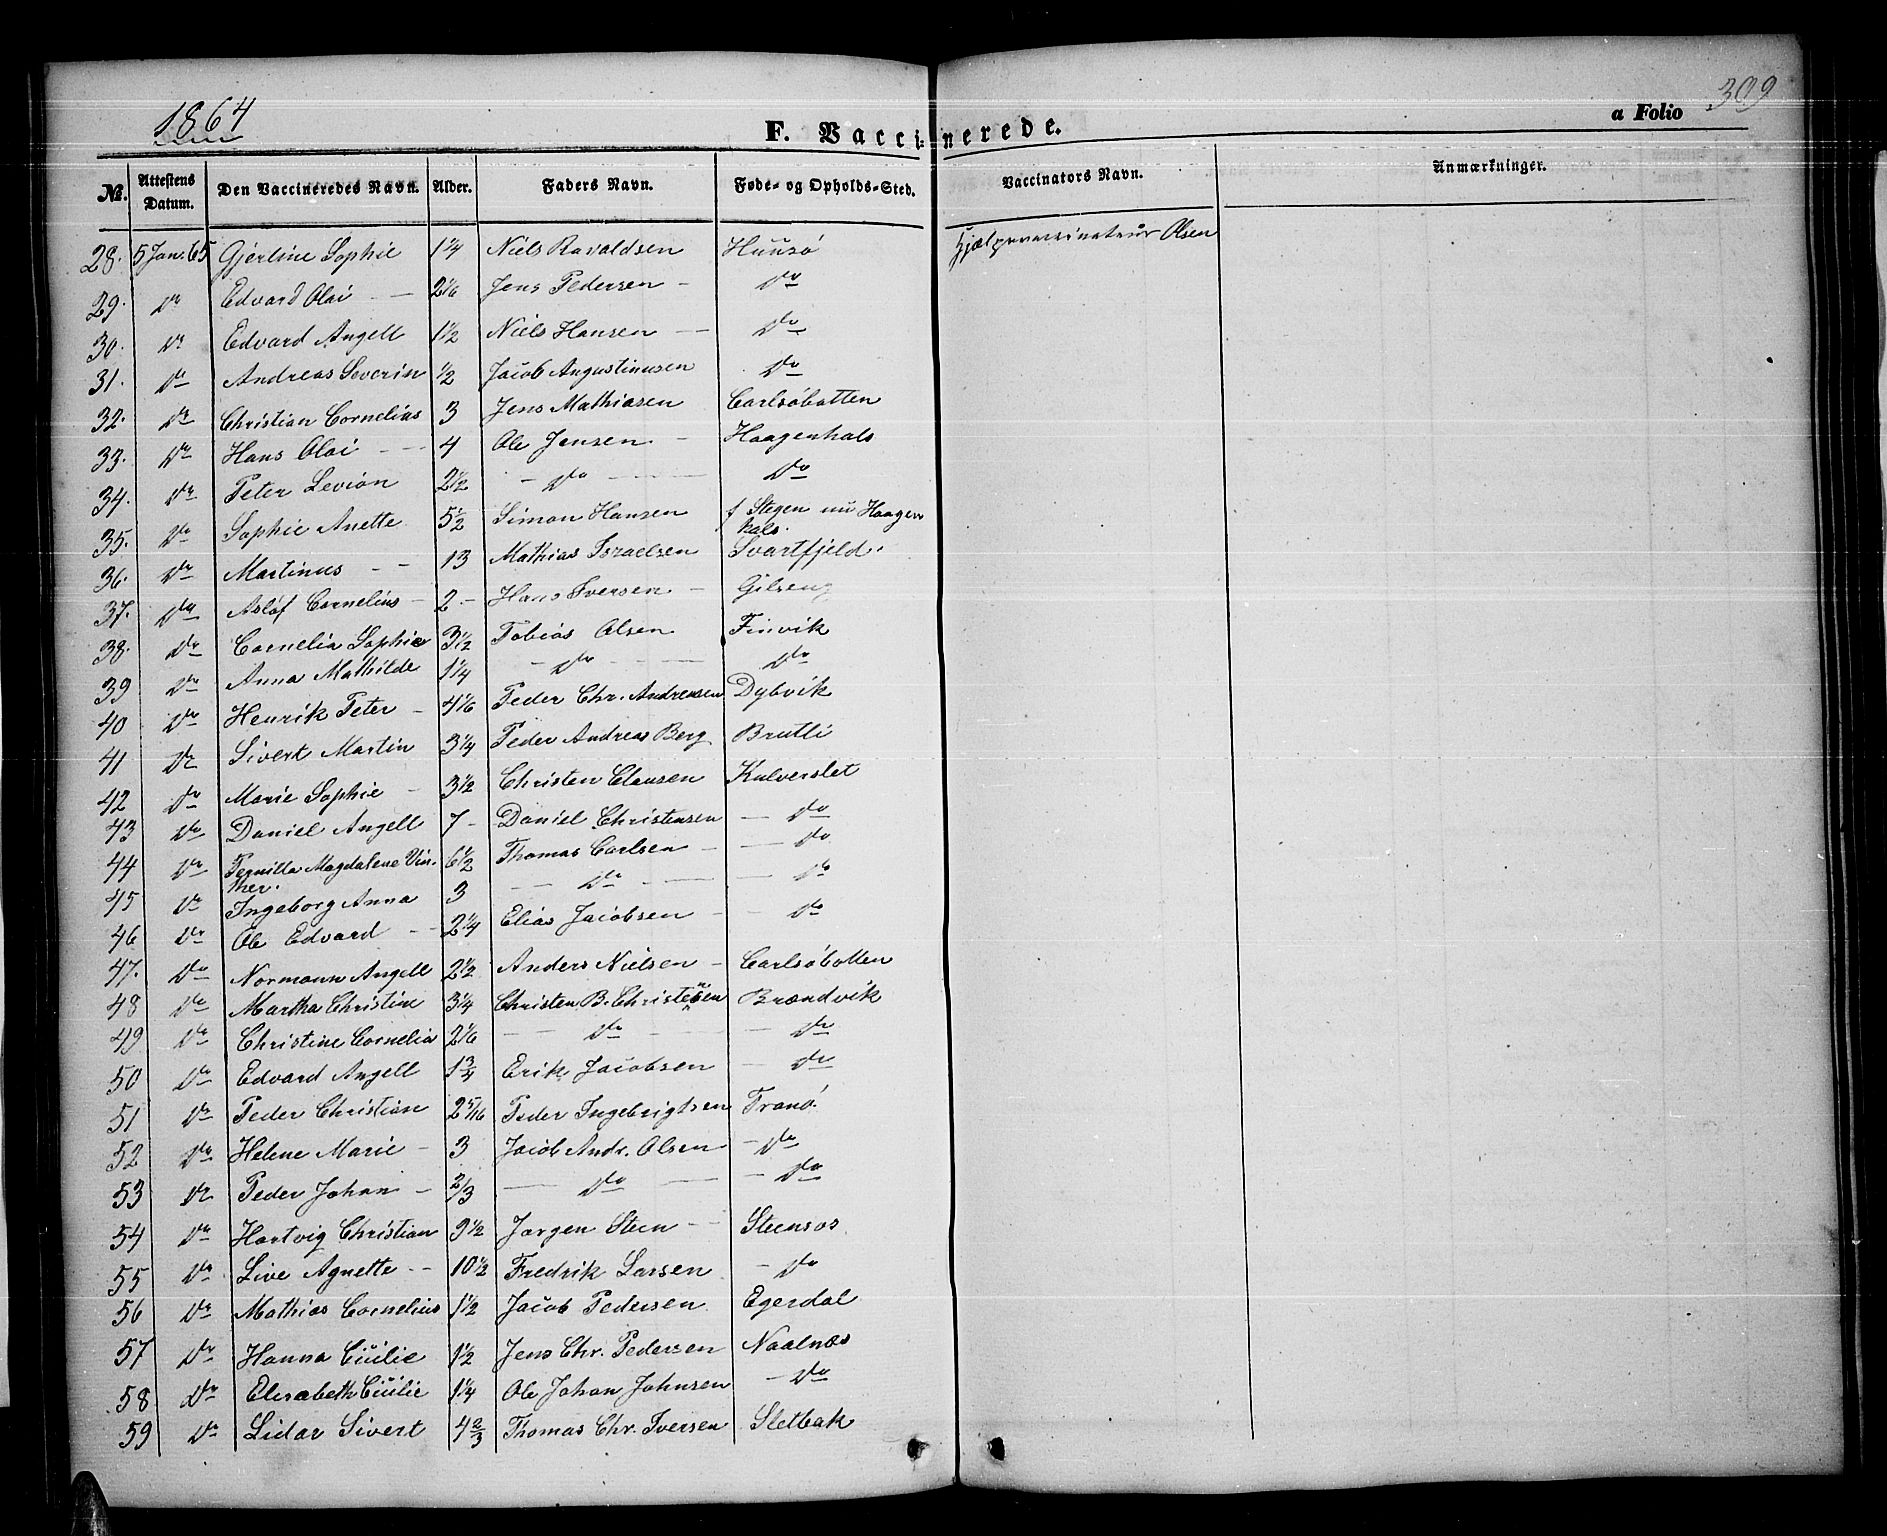 1864
F. Vaccinerede.
a Folio 309
№. Attestens Datum. Den Vaccineredes Navn. Alder. Faders Navn. Føde- og Opholds-Sted. Vaccinators Navn. Anmærkninger.
28. 5 Jan. 65 Gjerline Sophie 1 1/4 Niels Ravaldsen Huusö Hjælpevaccinateur Olsen
29. Do Edvard Olai — 2 1/6 Jens Pedersen — Do
30. Do Edvard Angell 1 1/2 Niels Hansen — Do
31. Do Andreas Severin 1/2 Jacob Augustinusen Do
32. Do Christian Cornelius 3 Jens Mathiasen Carlsöbotten
33. Do Hans Olai — 4 Ole Jensen — Haagenhals
34. Do Peter Levion 2 1/2 — Do — Do
35. Do Sophie Anette 5 1/2 Simon Hansen f Stegen nu Haagen
hals.
36. Do Martinus — 13 Mathias Israelsen Svartfjeld.
37. Do Aslöf Cornelius — 2 — Hans Iversen — Gilseng
38. Do Cornelia Sophie 3 1/2 Tobias Olsen Finvik
39 Do Anna Mathilde 1 1/4 — Do — Do
40 Do Henrik Peter — 4 1/6 Peder Chr. Andreasen Dybvik
41 Do Sivert Martin 3 1/4 Peder Andreas Berg Bratli
42 Do Marie Sophie — 3 1/2 Christen Clausen Kulverslet
43 Do Daniel Angell 7 — Daniel Christensen — Do
44 Do Pernilla Magdalene Vin-
ther. 6 1/2 Thomas Carlsen — — Do
45 Do Ingeborg Anna 3 — Do — — Do
46 Do Ole Edvard — 2 1/4 Elias Jacobsen — — Do
47. Do Normann Angell 2 1/2 Anders Nielsen — Carlsöbotten
48 Do Martha Christine 3 1/4 Christen B. Christensen Brændvik
49 Do Christine Cornelia 2 1/6 — Do — — Do
50 Do Edvard Angell 1 3/4 Erik Jacobsen — Do
51 Do Peder Christian 2 5/16 Peder Ingebrigtsen Tranö.
52 Do Helene Marie — 3 Jacob Andr. Olsen — Do
53 Do Peder Johan — 2/3 — Do — — Do
54 Do Hartvig Christian 9 1/2 Jørgen Steen — Steensos
55 Do Live Agnette — 10 1/2 Fredrik Larsen — Do
56 Do Mathias Cornelius 1 1/2 Jacob Pedersen Egerdal
57 Do Hanna Cicilie 1 1/2 Jens Chr. Pedersen Naalnæs
58 Do Elisabeth Cicilie 1 1/4 Ole Johan Johnsen — Do
59 Do Lidar Sivert 4 2/3 Thomas Chr. Iversen Sletbak